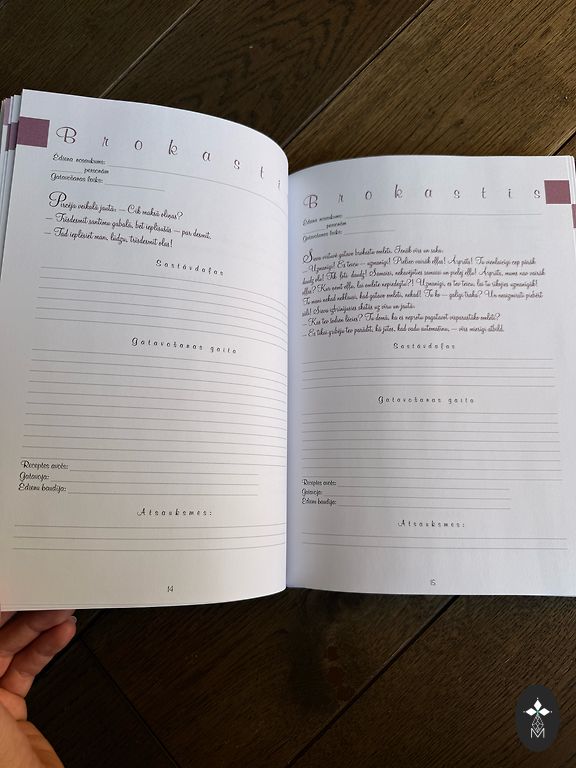 Brokasti
Ēdiena nosaukums:
personām
Gatavošanas laiks:
Pircējs veikalā jautā: – Cik maksā oliņas?
– Trīsdesmit santīmu gabalā, bet ieplīsušās – par desmit.
– Tad ieplēsiet man, lūdzu, trīsdesmit olas!
Sastāvdaļas
Gatavošanas gaita
Receptes avots:
Gatavoja:
Ēdienu baudīja:
Atsauksmes:
14
Brokastis
Ēdiena nosaukums:
personām
Gatavošanas laiks:
Sieva virtuvē gatavo brokastu omleti. Ienāk vīrs un saka:
– Uzmanīgi! Es teicu – uzmanīgi! Pielien vairāk eļļas! Apgriez! Tu vienlaicīgi cep pārāk
daudz olu! Tik ļoti daudz! Samaisi, nekavējoties samaisi un pielej eļļu! Apgriez, mums nav vairāk
eļļas? Kur ņemt eļļu, lai omlete nepiedegtu?! Uzmanīgi, es tev teicu, lai tu rīkojies uzmanīgāk!
Tu mani nekad neklausi, kad gatavo omleti, nekad! Tu ko – galīgi traka? Un neaizmirsti piebērt
sāli! Sieva izbrīnījusies skatās uz vīru un jautā:
– Kas tev šodien lēcies? Tu domā, ka es neprotu pagatavot visparastāko omleti?
– Es tikai gribēju tev parādīt, kā jūtos, kad vadu automašīnu, – vīrs mierīgi atbild.
Sastāvdaļas
Gatavošanas gaita
Receptes avots:
Gatavoja:
Ēdienu baudīja:
Atsauksmes:
15
M